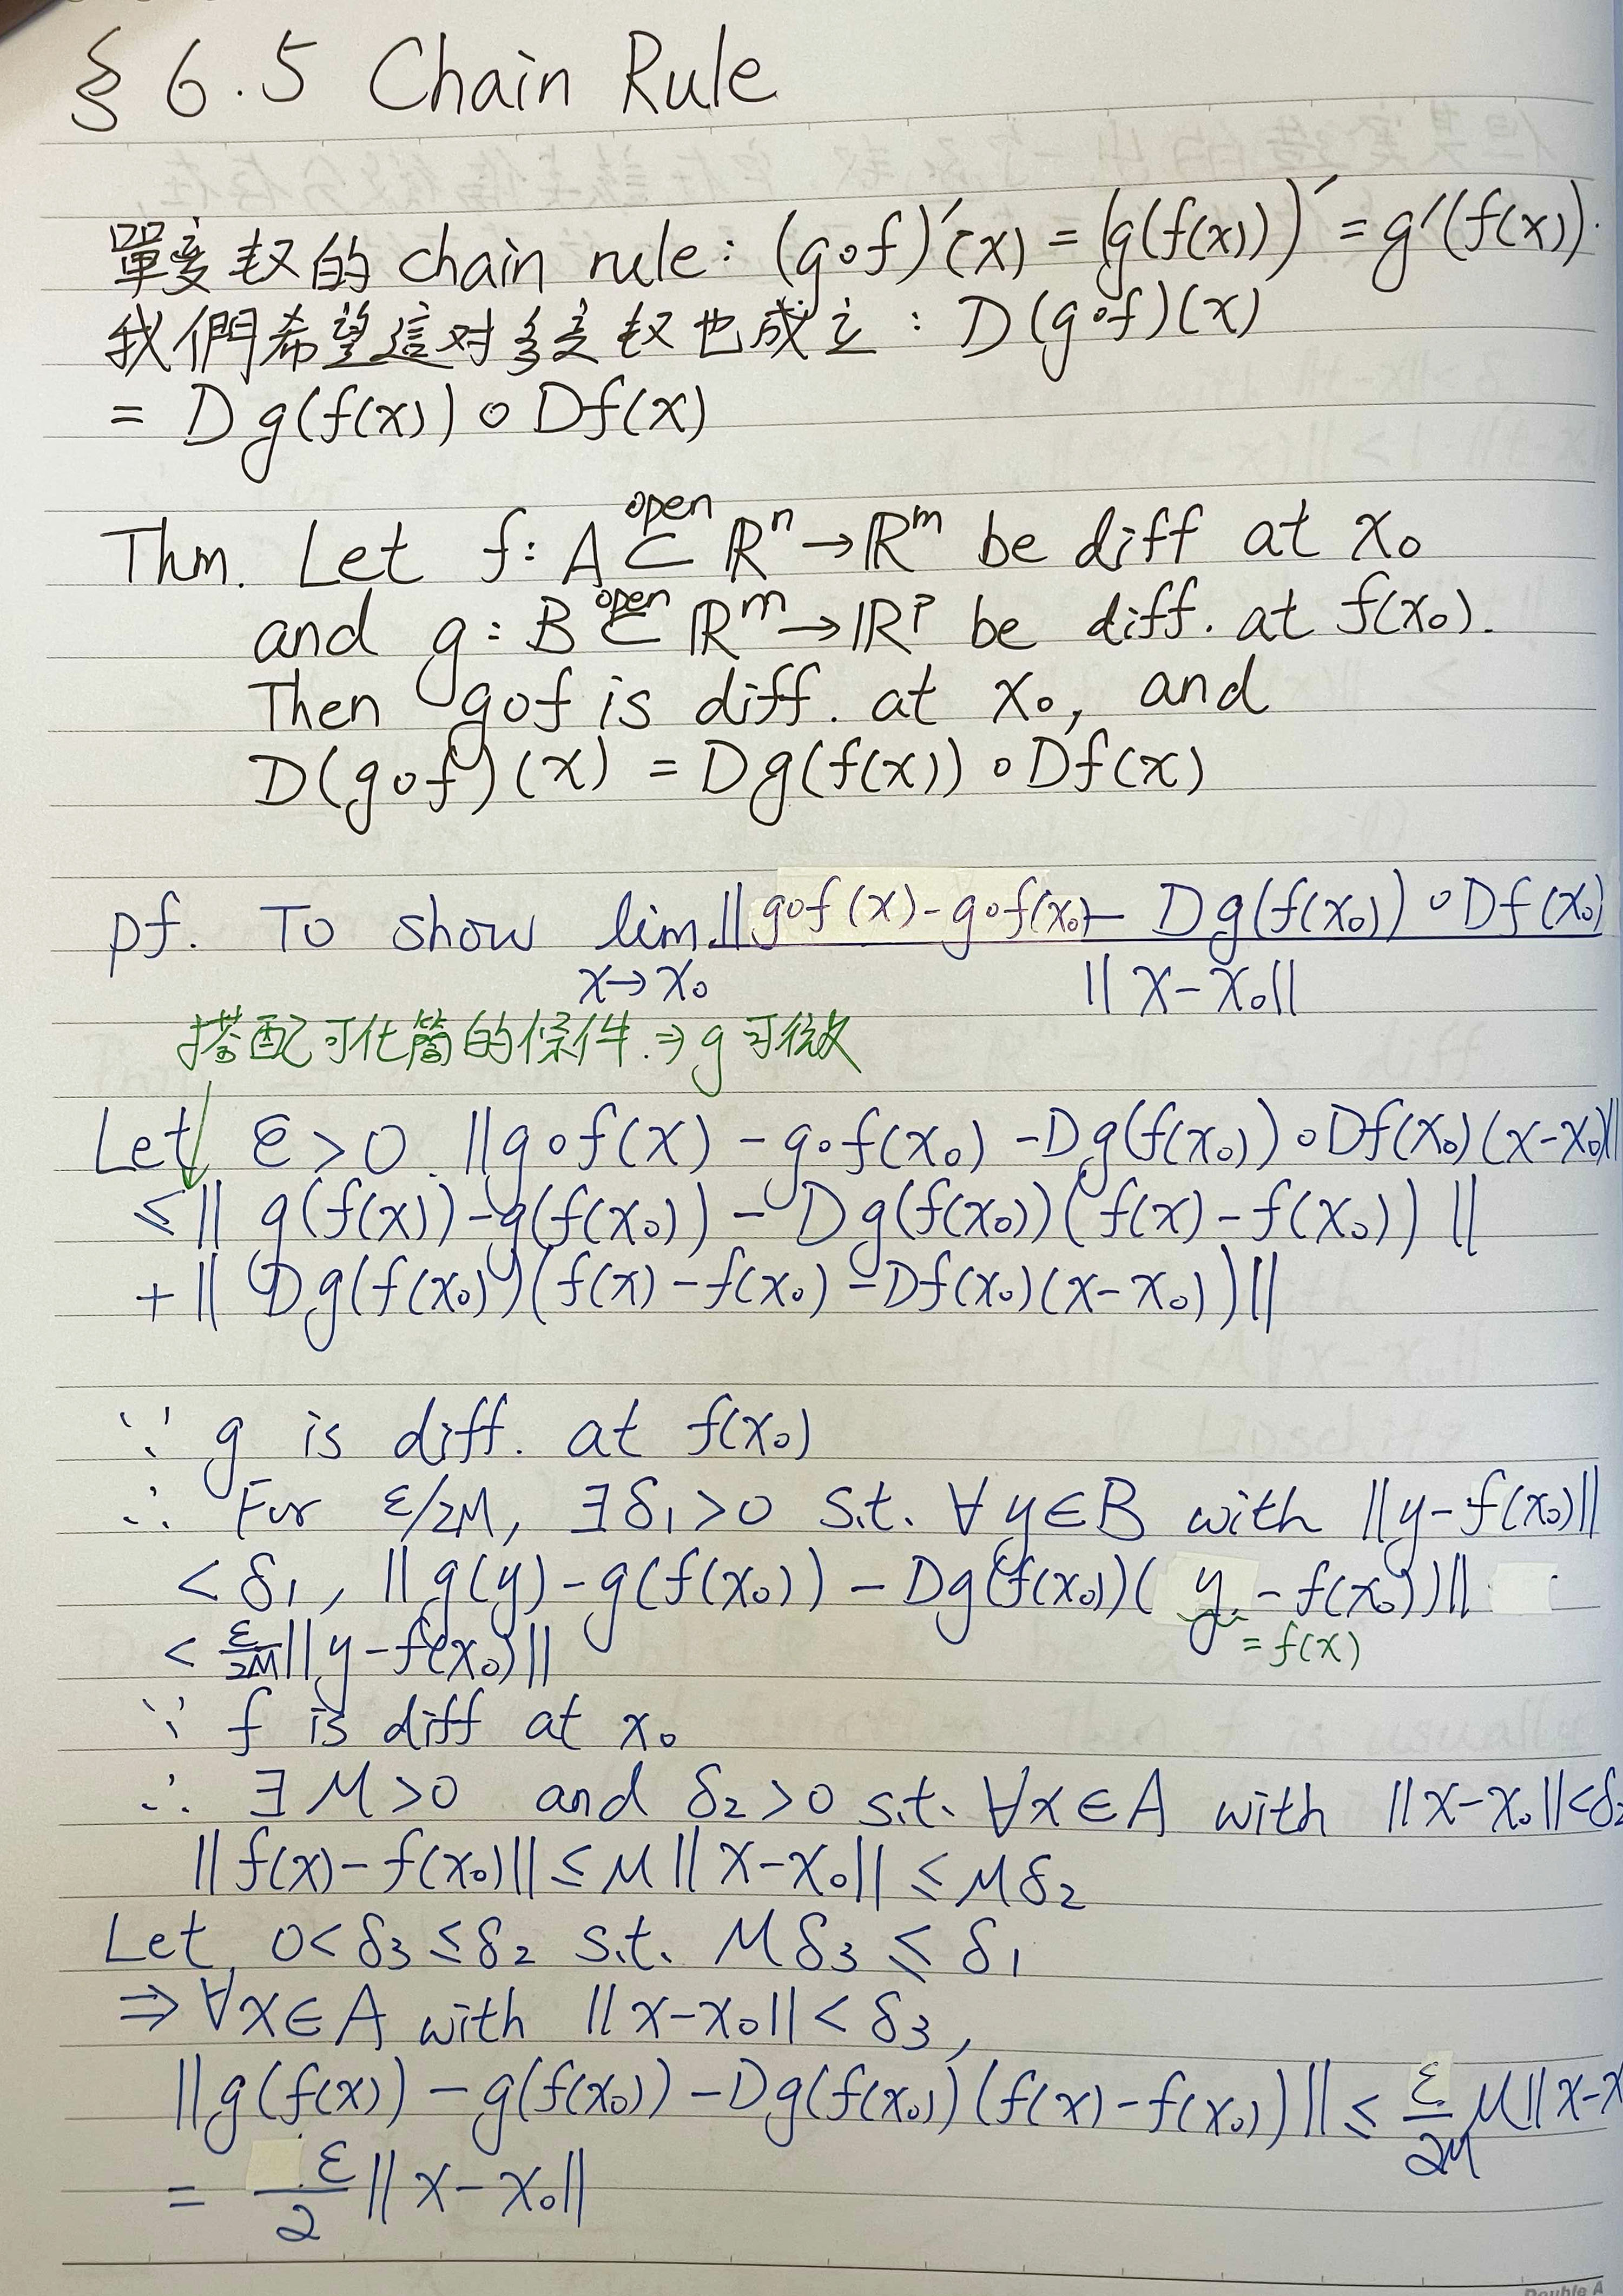 § 6.5 Chain Rule
單变数的 chain rule: (g∘f)′(x) = (g(f(x)))′ = g′(f(x))·
我們希望這对多变数也成立: D(g∘f)(x)
= Dg(f(x)) ∘ Df(x)
Thm. Let f: A ⊂^open ℝ^n → ℝ^m be diff at x₀
and g: B ⊂^open ℝ^m → ℝ^p be diff. at f(x₀).
Then g∘f is diff. at x₀, and
D(g∘f)(x) = Dg(f(x)) ∘ Df(x)
pf. To show lim ‖g∘f(x) - g∘f(x₀) - Dg(f(x₀)) ∘ Df(x₀)
x→x₀ ‖x-x₀‖
搭配可化簡的條件.⇒ g可微
Let ε > 0. ‖g∘f(x) - g∘f(x₀) - Dg(f(x₀)) ∘ Df(x₀)(x-x₀)‖
≤ ‖g(f(x)) - g(f(x₀)) - Dg(f(x₀))(f(x) - f(x₀))‖
+ ‖Dg(f(x₀))(f(x) - f(x₀) - Df(x₀)(x-x₀))‖
∵ g is diff. at f(x₀)
∴ For ε/2M, ∃δ₁>0 s.t. ∀y∈B with ‖y-f(x₀)‖
< δ₁, ‖g(y) - g(f(x₀)) - Dg(f(x₀))(y - f(x₀))‖
= f(x)
< ε/2M ‖y-f(x₀)‖
∵ f is diff at x₀
∴ ∃M>0 and δ₂>0 s.t. ∀x∈A with ‖x-x₀‖<δ₂
‖f(x) - f(x₀)‖ ≤ M‖x-x₀‖ ≤ Mδ₂
Let 0<δ₃≤δ₂ s.t. Mδ₃ ≤ δ₁
⇒ ∀x∈A with ‖x-x₀‖ < δ₃,
‖g(f(x)) - g(f(x₀)) - Dg(f(x₀))(f(x) - f(x₀))‖ ≤ ε/2M M‖x-x
= ε/2 ‖x-x₀‖
Double A